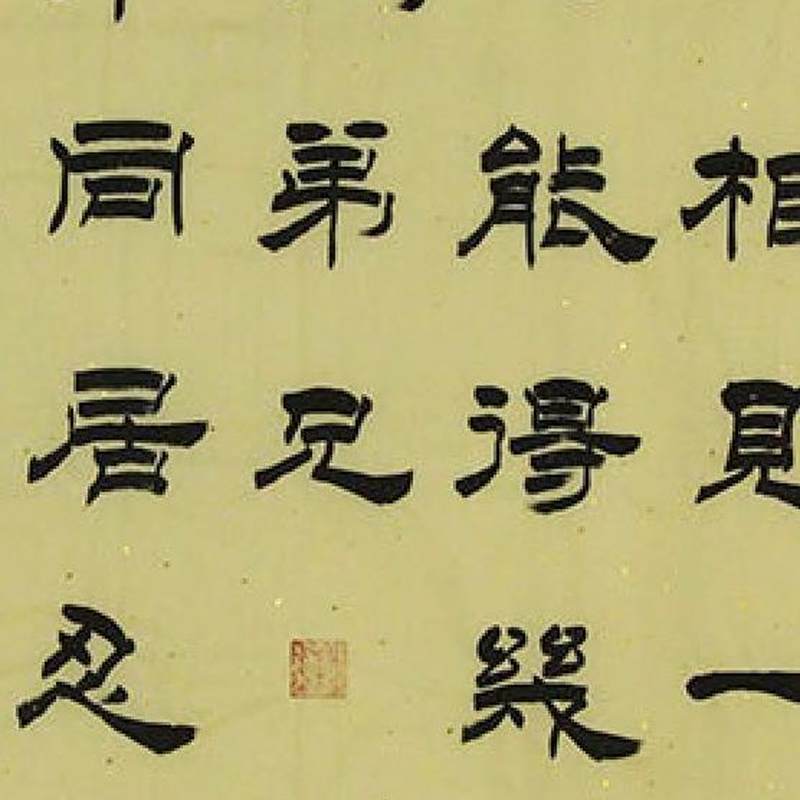 相見一
能得幾
弟兄
同居忍